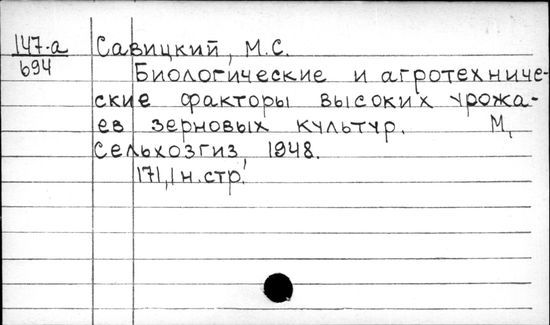 147-а Савицкий, М.С.
694
Биологические и агротехниче-
ские факторы высоких урожа-
ев зерновых культур. М,
Сельхозгиз, 1948.
171,1н.стр.